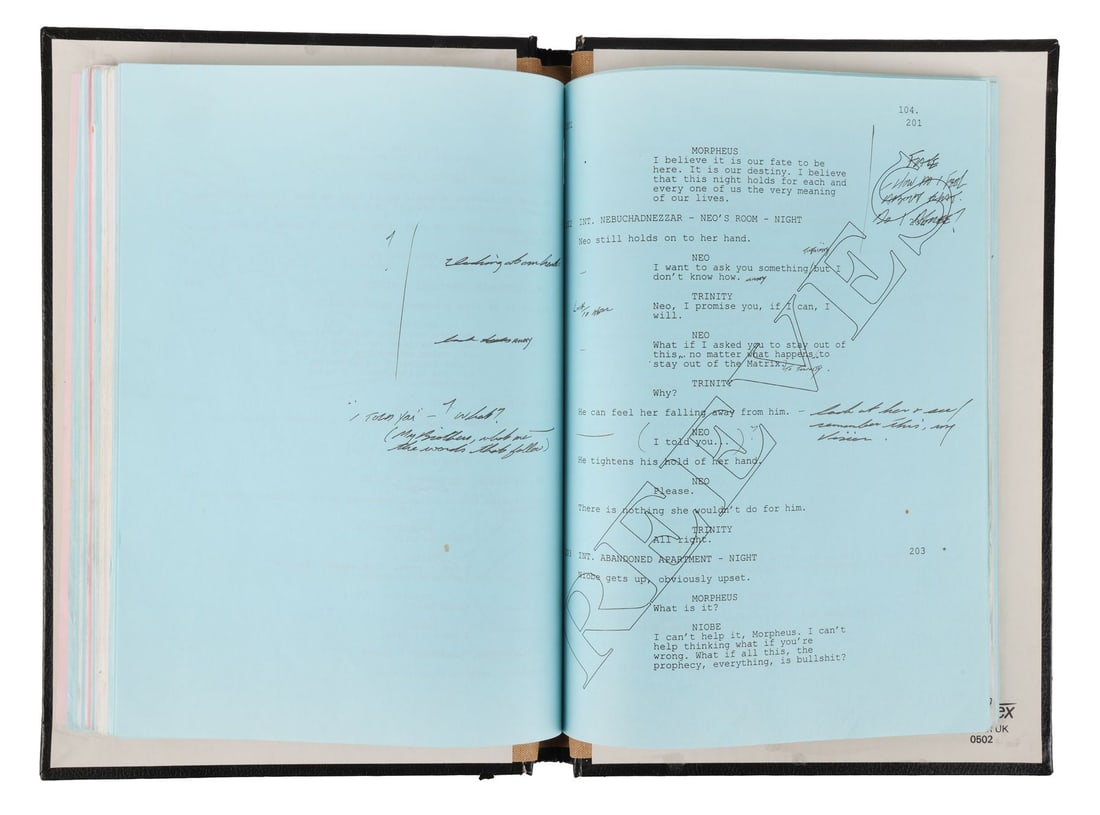 looking at our hands
look away
"I TOLD YOU" - what?
(My Brothers, what are
the words that follow)
104.
201
MORPHEUS
I believe it is our fate to be
here. It is our destiny. I believe
that this night holds for each and
every one of us the very meaning
of our lives.
INT. NEBUCHADNEZZAR - NEO'S ROOM - NIGHT
Neo still holds on to her hand.
NEO
I want to ask you something but I
don't know how.
TRINITY
Neo, I promise you, if I can, I
will.
NEO
What if I asked you to stay out of
this, no matter what happens to
stay out of the Matrix.
TRINITY
Why?
He can feel her falling away from him. - look at her & see/
remember this, my
vision.
NEO
I told you...
He tightens his hold of her hand.
NEO
Please.
There is nothing she wouldn't do for him.
TRINITY
All right.
INT. ABANDONED APARTMENT - NIGHT
203
Niobe gets up, obviously upset.
MORPHEUS
What is it?
NIOBE
I can't help it, Morpheus. I can't
help thinking what if you're
wrong. What if all this, the
prophecy, everything, is bullshit?
ex
UK
0502